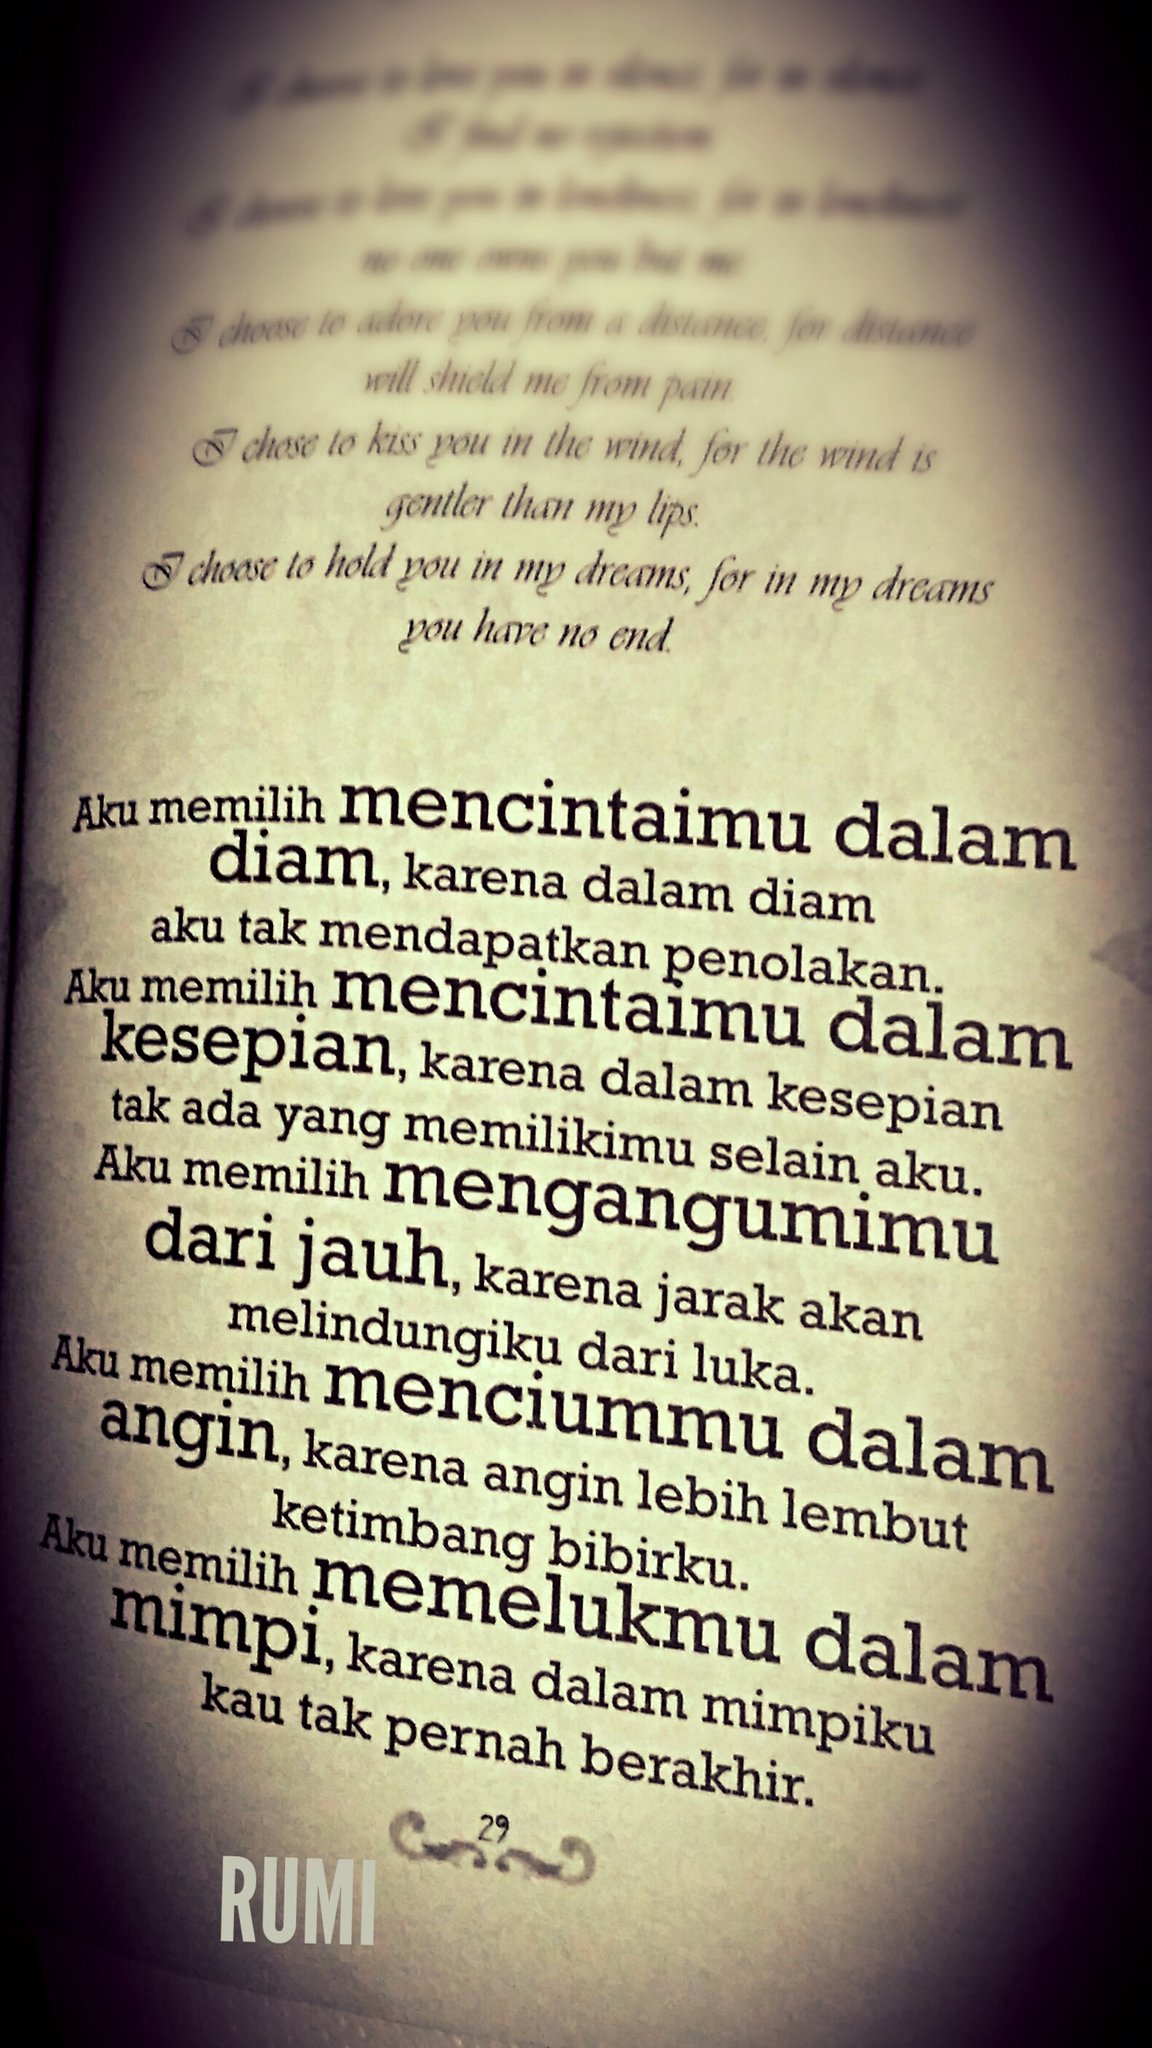 I choose to love you in silence, for in silence
I find no rejection
I choose to love you in loneliness, for in loneliness
no one owns you but me
I choose to adore you from a distance, for distance
will shield me from pain.
I chose to kiss you in the wind, for the wind is
gentler than my lips.
I choose to hold you in my dreams, for in my dreams
you have no end.
Aku memilih mencintaimu dalam
diam, karena dalam diam
aku tak mendapatkan penolakan.
Aku memilih mencintaimu dalam
kesepian, karena dalam kesepian
tak ada yang memilikimu selain aku.
Aku memilih mengangumimu
dari jauh, karena jarak akan
melindungiku dari luka.
Aku memilih menciummu dalam
angin, karena angin lebih lembut
ketimbang bibirku.
Aku memilih memelukmu dalam
mimpi, karena dalam mimpiku
kau tak pernah berakhir.
29
RUMI